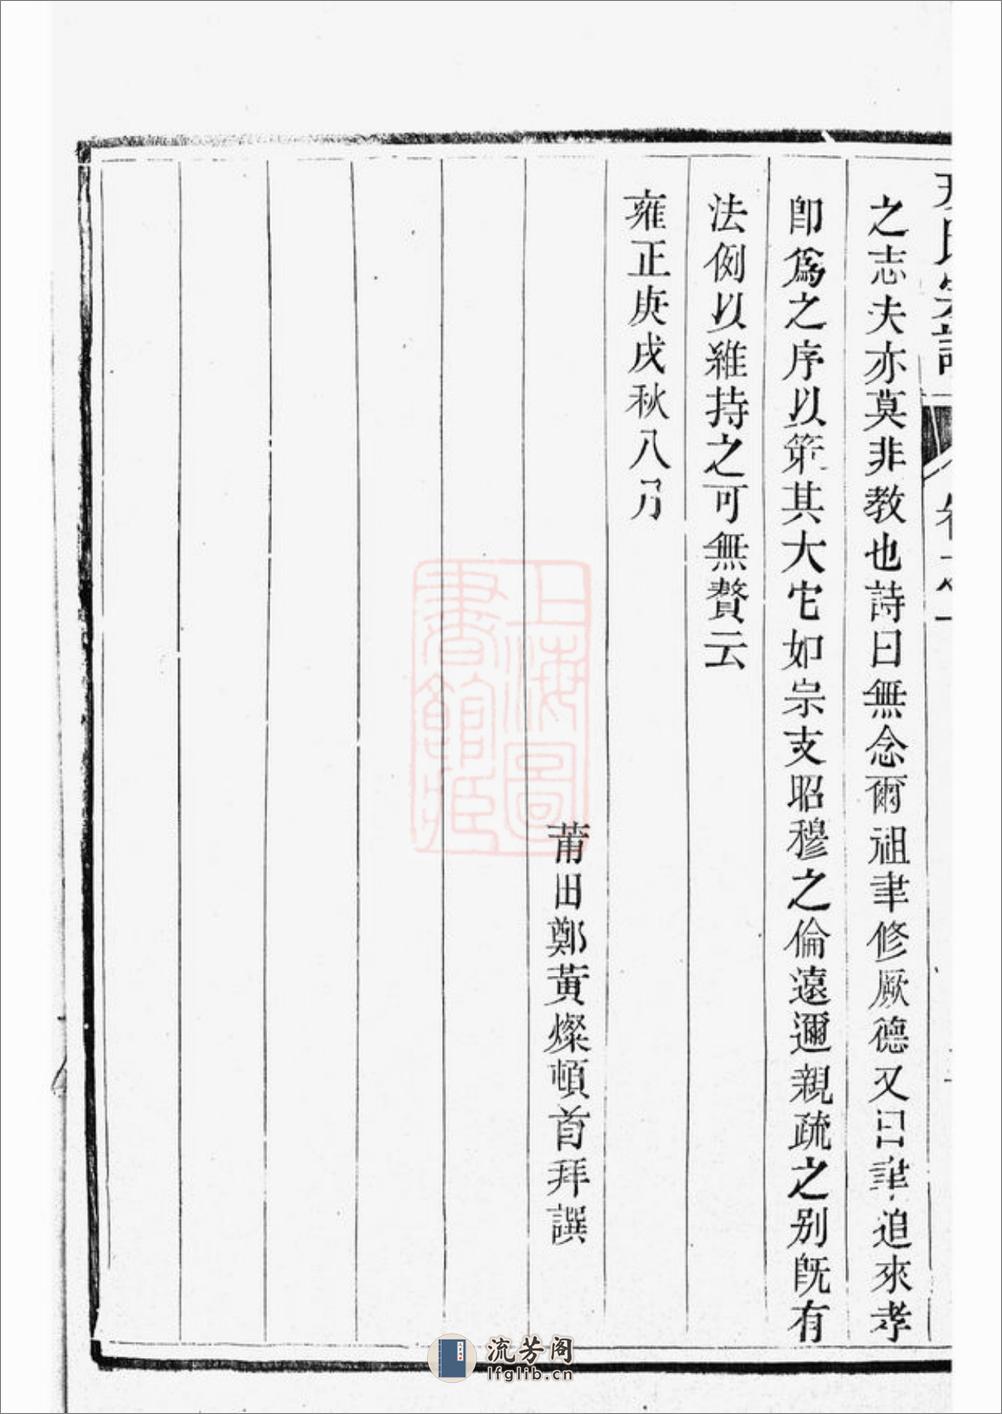 氏宗譜
卷之一
之志夫亦莫非教也詩曰無念爾祖聿修厥德又曰聿追來孝
卽爲之序以策其大它如宗支昭穆之倫遠邇親疏之別旣有
法例以維持之可無贅云
雍正庚戌秋八月
莆田鄭黃燦頓首拜譔
上海圖書館藏
流芳阁
lfglib.cn